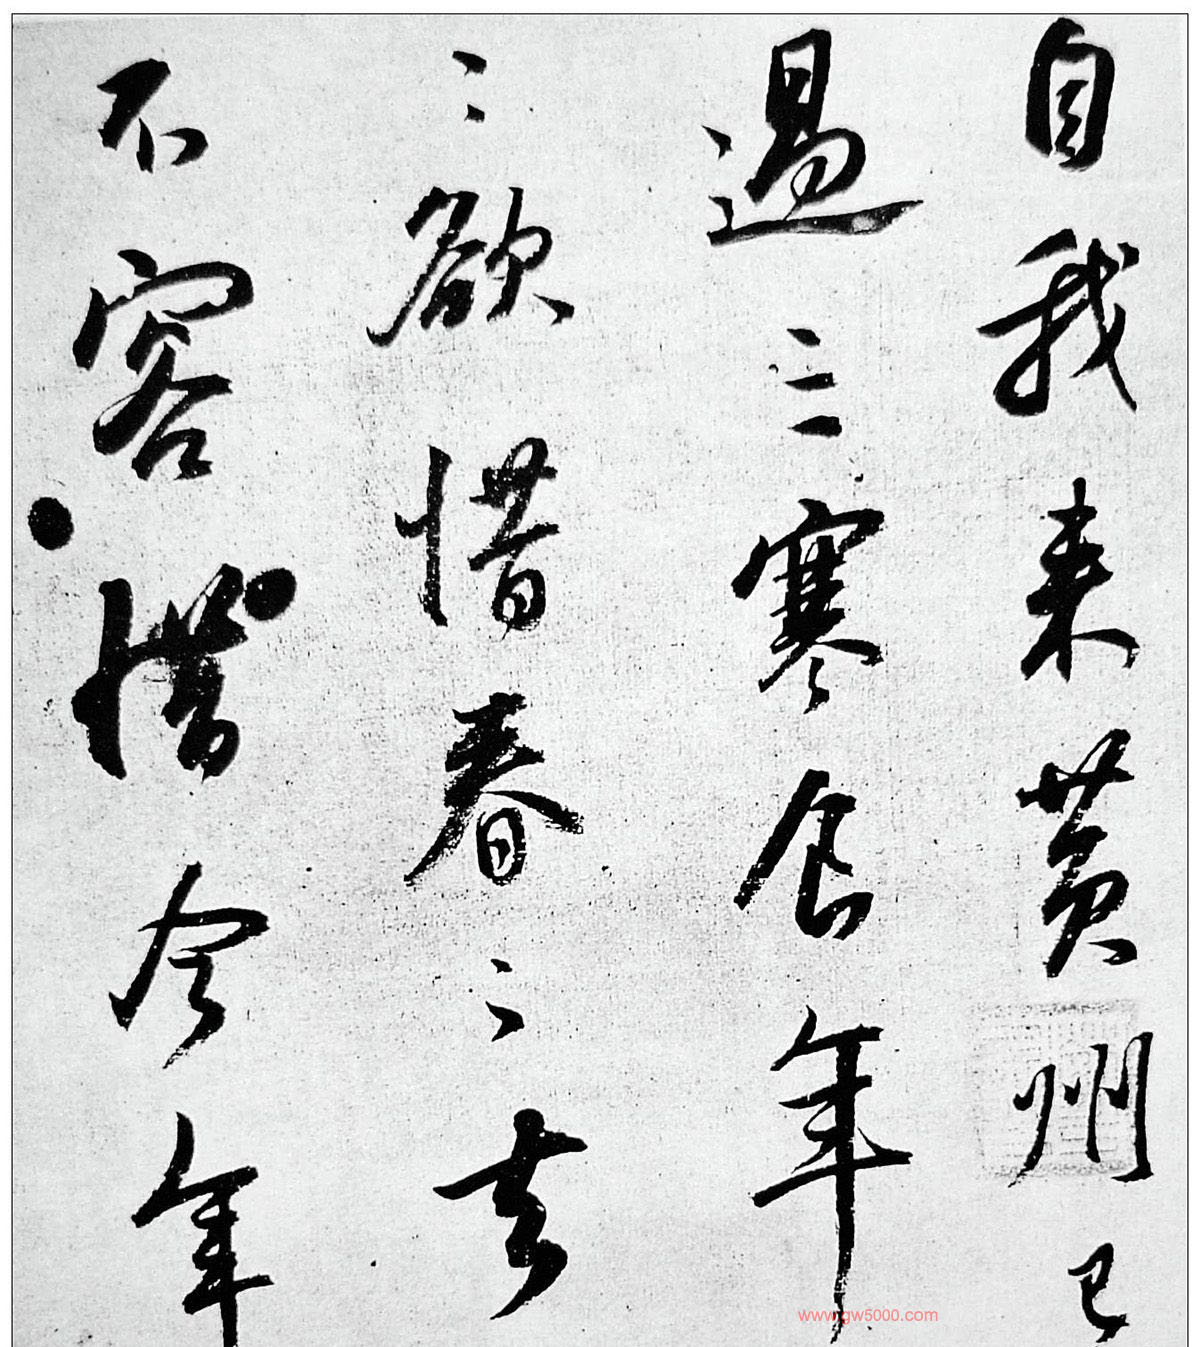 自我来黄州已
過三寒食年
〻欲惜春〻去
不容惜今年
www.gw5000.com